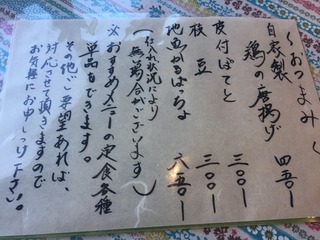 くおつまみく
自家製
鶏の唐揚げ 四五〇ー
皮付ぽてと 三〇〇ー
枝豆 三〇〇ー
地魚がるぱっちょ 六五〇ー
(仕入れ状況により
無い場合がございます)
※おすすめメニューの定食各種
単品もできます。
その他ご要望あれば、
対応させて頂きますので
お気軽にお申しつけ下さい。